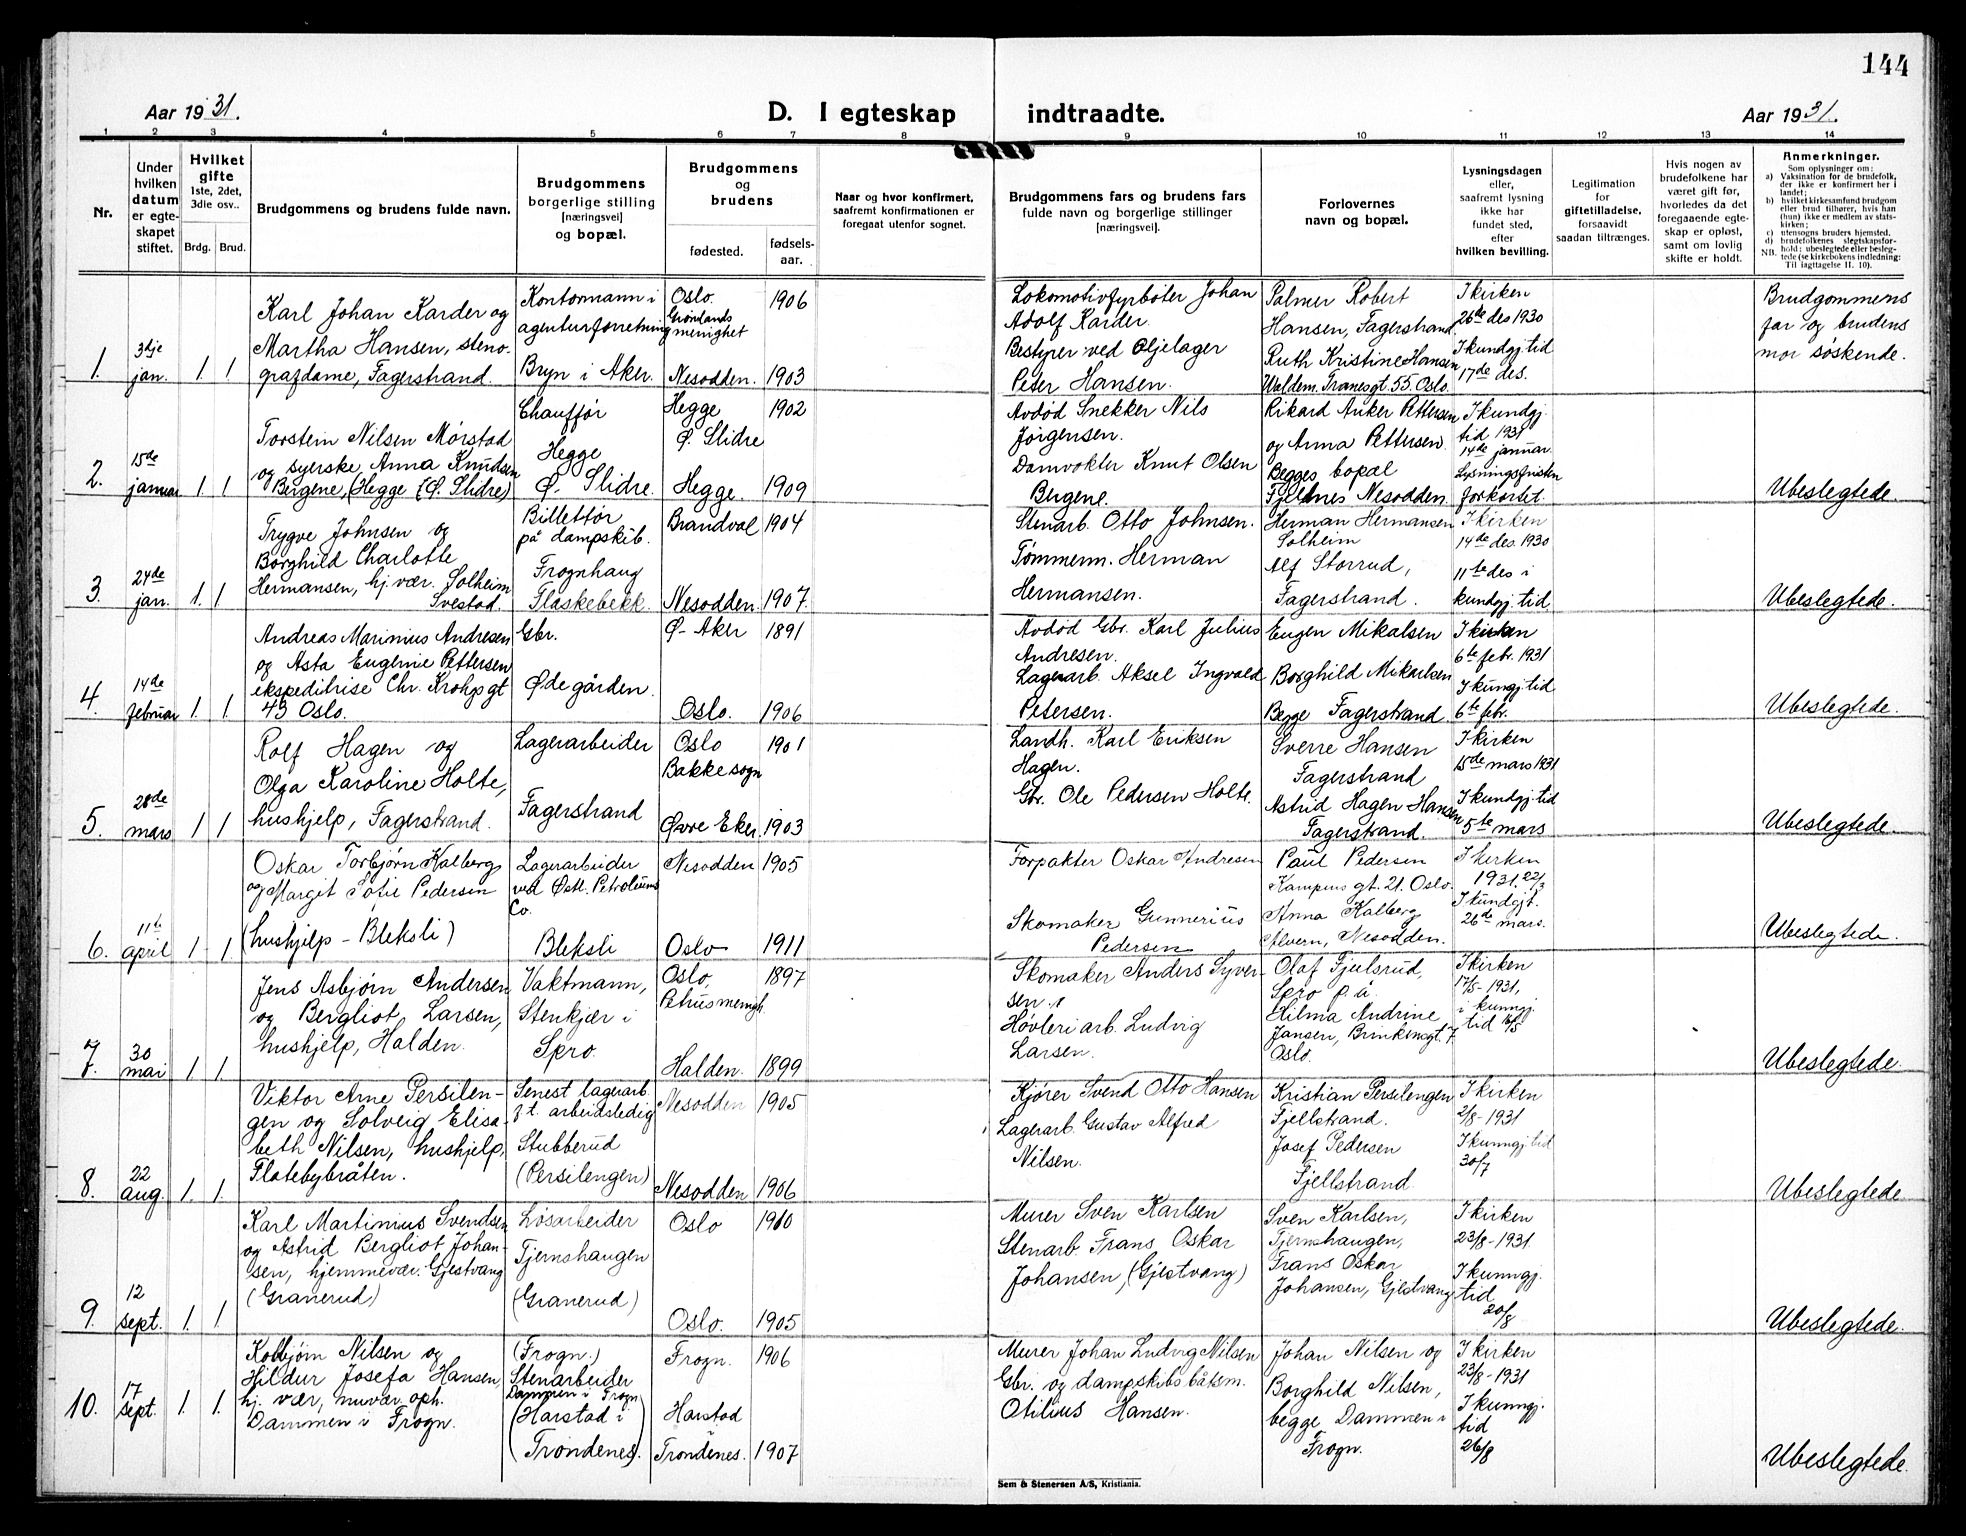 144
Aar 1931.
D. I egteskap indtraadte.
Aar 1931.
1 2 3 4 5 6 7 8 9 10 11 12 13 14
Nr.
Under
hvilken
datum
er egte-
skapet
stiftet.
Hvilket
gifte
1ste, 2det,
3die osv..
Brdg. Brud.
Brudgommens og brudens fulde navn.
Brudgommens
borgerlige stilling
[næringsvei]
og bopæl.
Brudgommens
og
brudens
fødested.
fødsels-
aar.
Naar og hvor konfirmert,
saafremt konfirmationen er
foregaat utenfor sognet.
Brudgommens fars og brudens fars
fulde navn og borgerlige stillinger
[næringsvei].
Forlovernes
navn og bopæl.
Lysningsdagen
eller,
saafremt lysning
ikke har
fundet sted,
efter
hvilken bevilling.
Legitimation
for
giftetilladelse,
forsaavidt
saadan tiltrænges.
Hvis nogen av
brudefolkene har
været gift før,
hvorledes da det
foregaaende egte-
skap er opløst,
samt om lovlig
skifte er holdt.
Anmerkninger.
Som oplysninger om:
a) Vaksination for de brudefolk,
der ikke er konfirmert her i
landet;
b) hvilket kirkesamfund brudgom
eller brud tilhører, hvis han
(hun) ikke er medlem av stats-
kirken;
c) utensogns bruders hjemsted.
d) brudefolkenes slegtskapsfor-
hold: ubeslegtede eller besleg-
NB. tede (se kirkebokens indledning:
Til iagttagelse II. 10).
1.
3dje
jan.
1 1
Karl Johan Karder og
Martha Hansen, steno-
grafdame, Fagerstrand.
Kontormann i
agenturforretning
Bryn i Aker.
Oslo.
Grønlands
menighet
1906
Nesodden. 1903
Lokomotivfyrbøter Johan
Adolf Karder.
Bestyrer ved Oljelager
Peter Hansen.
Palmer Robert
Hansen, Fagerstrand.
Ruth Kristine Hansen
Waldem. Tranesgt. 55. Oslo.
I kirken
26de des 1930
I kundgj. tid
17de des.
Brudgommens
far og brudens
mor søskende.
2.
15de
januar
1. 1
Torstein Nilsen Mørstad
og syerske Anna Knudsen
Bergene, (Hegge (Ø. Slidre)
Chauffør
Hegge
Ø. Slidre.
Hegge
Ø. Slidre
1902
Hegge. 1909
Avdød Snekker Nils
Jørgensen.
Damvokter Knut Olsen
Bergene.
Rikard Anker Pettersen
og Anna Pettersen.
Begges bopæl
Fjellnes Nesodden.
I kundgj.
tid 1931
14de januar.
Lysningsfristen
forkortet.
Ubeslegtede.
3.
24de
jan.
1. 1
Trygve Johnsen og
Borghild Charlotte
Hermansen, hj. vær. Solheim
Svestad.
Billettør
på dampskib.
Frognhaug
Flaskebekk.
Brandval 1904
Nesodden. 1907.
Stenarb. Otto Johnsen.
Tømmerm. Herman
Hermansen.
Herman Hermansen
Solheim
Alf Storrud,
Fagerstrand.
I kirken
14de des. 1930
11te des i
kundgj. tid
Ubeslegtede.
4.
14de
februar
1. 1.
Andreas Marinius Andresen
og Asta Eugenie Pettersen
ekspeditrise Chr. Krohgs gt
43 Oslo.
Gbr.
Ødegården.
Ø-Aker 1891
Oslo. 1906
Avdød Gbr. Karl Julius
Andresen.
Lagerarb. Aksel Ingvald
Petersen.
Eugen Mikalsen
Borghild Mikalsen
Begge Fagerstrand
I kirken
6te febr. 1931
I kungj. tid
6te febr.
Ubeslegtede.
5.
28de
mars
1 1
Rolf Hagen og
Olga Karoline Holte,
hushjelp, Fagerstrand.
Lagerarbeider
Fagerstrand
Oslo
Bakke sogn
1901
Øvre Eker. 1903
Landh. Karl Eriksen
Hagen.
Gbr. Ole Pedersen Holte.
Sverre Hansen
Fagerstrand
Astrid Hagen Hansen
Fagerstrand.
I kirken
15de mars 1931
I kundgj. tid
5te mars
Ubeslegtede.
6.
11te
april
1 1
Oskar Torbjørn Kalberg
og Margit Sofie Pedersen
(hushjelp - Bleksli)
Lagerarbeider
ved Østl. Petroleums
Co.
Bleksli
Nesodden 1905
Oslo 1911
Forpakter Oskar Andresen
Skomaker Gunnerius
Pedersen
Paul Pedersen
Kampens gt. 21. Oslo.
Anna Kalberg
Alvern, Nesodden.
I kirken
1931. 22/3
I kundgj t.
26de mars.
Ubeslegtede.
7.
30
mai
1 1.
Jens Asbjørn Andersen
og Bergliot Larsen,
hushjelp, Halden.
Vaktmann,
Stenkjær i
Spro.
Oslo,
Petrus menigh.
1897
Halden. 1899
Skomaker Anders Syver-
sen.
Høvleriarb. Ludvig
Larsen.
Olaf Fjelsrud,
Spro p. å.
Hilma Andrine
Jansen, Brinkensgt. 7.
Oslo.
I kirken
17/5-1931,
i kunngj.
tid
Ubeslegtede.
8.
22
aug.
1. 1.
Viktor Arne Persilen-
gen og Solveig Elisa-
beth Nilsen, hushjelp,
Flatebybråten.
Senest lagerarb.
z. t. arbeidsledig
Stubberud
(Persilengen)
Nesodden 1905
Nesodden 1906
Kjører Svend Otto Hansen
Lagerarb. Gustav Alfred
Nilsen.
Kristian Persilengen
Fjellstrand.
Josef Pedersen
Fjellstrand
I kirken
2/8-1931
I kunngj tid
30/7
Ubeslegtede
9.
12
sept.
1. 1
Karl Martinius Svendsen
og Astrid Bergliot Johan-
sen, hjemmevær. Gjestvang
(Granerud)
Løsarbeider
Tjernshaugen
(Granerud)
Oslo 1910
Oslo. 1905
Murer Sven Karlsen
Stenarb. Frans Oskar
Johansen, (Gjestvang)
Sven Karlsen,
Tjernshaugen,
Frans Oskar
Johansen, Gjestvang
I kirken
23/8-1931
I kunngj.
tid
20/8
Ubeslegtede.
10.
17
sept.
1. 1.
Kolbjørn Nilsen og
Hildur Josefa Hansen,
hj. vær, nuvær. oph.
Dammen i Frogn.
(Frogn.)
Stenarbeider
Dammen i Frogn
(Harstad i
Trondenes).
Frogn. 1906
Harstad
Trondenes. 1907
Murer Johan Ludvig Nilsen
Gbr. og dampskibsbåtsm.
Otilius Hansen.
Johan Nilsen og
Borghild Nilsen,
begge Dammen i
Frogn.
I kirken
23/8-1931
I kunngj.
tid
26/8
Ubeslegtede.
Sem & Stenersen A/S, Kristiania.